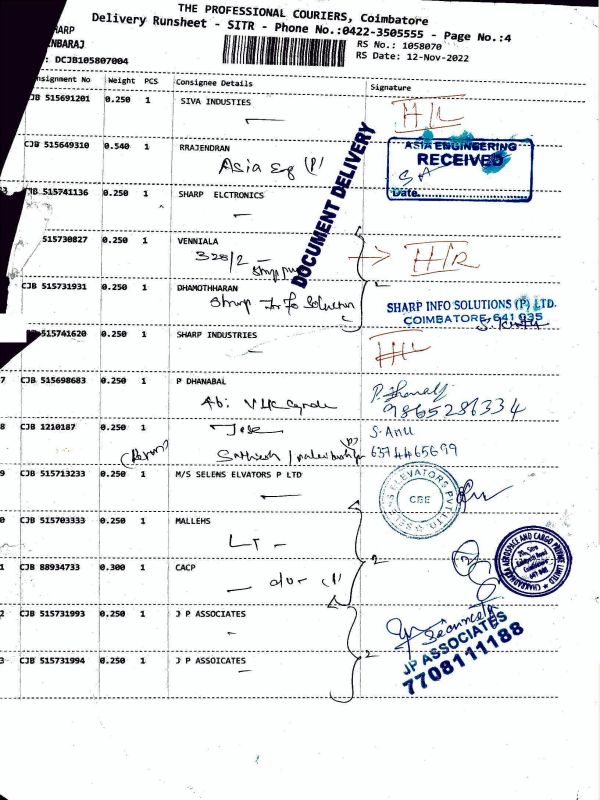 THE PROFESSIONAL COURIERS, Coimbatore
Delivery Runsheet - SITR - Phone No.:0422-3505555 - Page No.:4
SHARP
ENBARAJ
: DCJB105807004
RS No.: 1058070
RS Date: 12-Nov-2022
nsignment No Weight PCS Consignee Details Signature
JB 515691201 0.250 1 SIVA INDUSTIES
CJB 515649310 0.540 1 RRAJENDRAN
Asia Eng (P)
ASIA ENGINEERING
RECEIVED
Date.
DOCUMENT DELIVERY
JB 515741136 0.250 1 SHARP ELCTRONICS
515730827 0.250 1 VENNIALA
328/2 -
H/R
CJB 515731931 0.250 1 DHAMOTHHARAN
Sharp Info Solution
SHARP INFO SOLUTIONS (P) LTD.
COIMBATORE-641 035
515741620 0.250 1 SHARP INDUSTRIES
7 CJB 515698683 0.250 1 P DHANABAL
P. Dhanabal
9865286334
8 CJB 1210187 0.250 1 Jose
S. Anu
6374465699
9 CJB 515713233 0.250 1 M/S SELENS ELVATORS P LTD
SELENS ELEVATORS PVT LTD
CBE
0 CJB 515703333 0.250 1 MALLEHS
LT -
2
1 CJB 88934733 0.300 1 CACP
CHAKRADHARA AEROSPACE AND CARGO PRIVATE LIMITED
2 CJB 515731993 0.250 1 J P ASSOCIATES
3 CJB 515731994 0.250 1 J P ASSOICATES
2
JP ASSOCIATES
7708111188
1